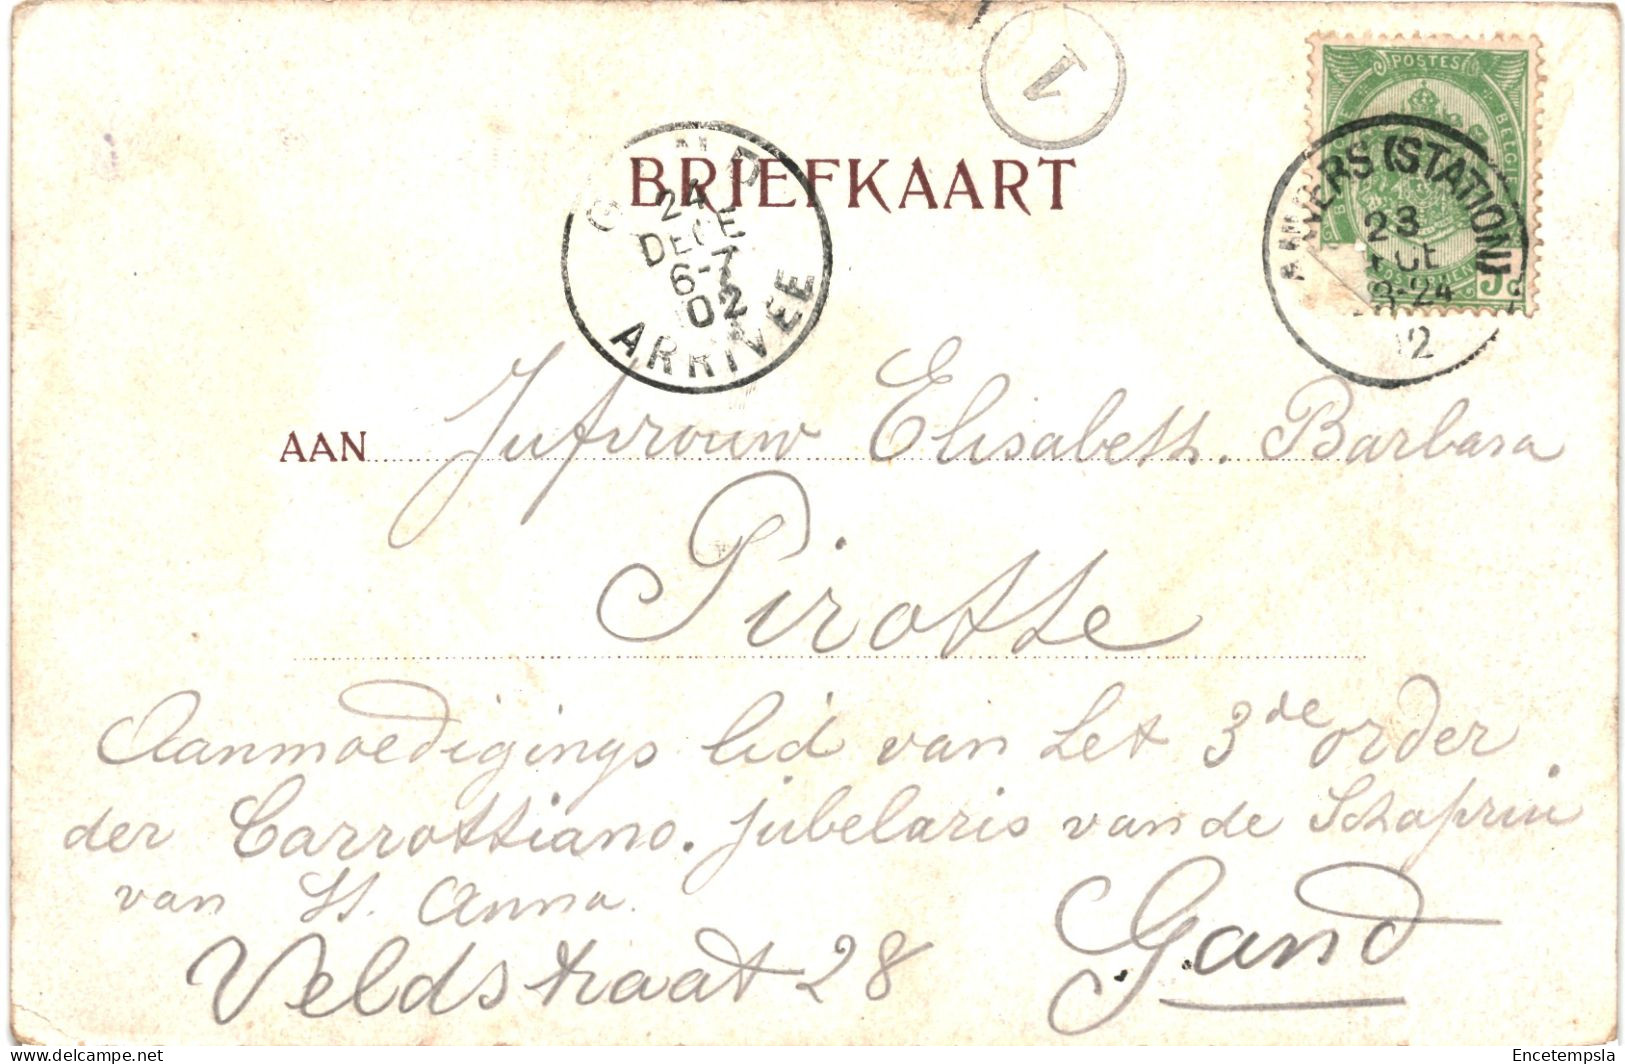 1
POSTES
BELGI
ANVERS (STATION)
23
8-24
GAND
24
DECE
6-7
02
ARRIVEE
BRIEFKAART
AAN Jufvrouw Elisabeth. Barbara
Pirotte
Aanmoedigings lid van het 3de order
der Carrottiano. jubelaris van de Schaprin
van St. Anna.
Veldstraat 28 Gand
Encetempsla